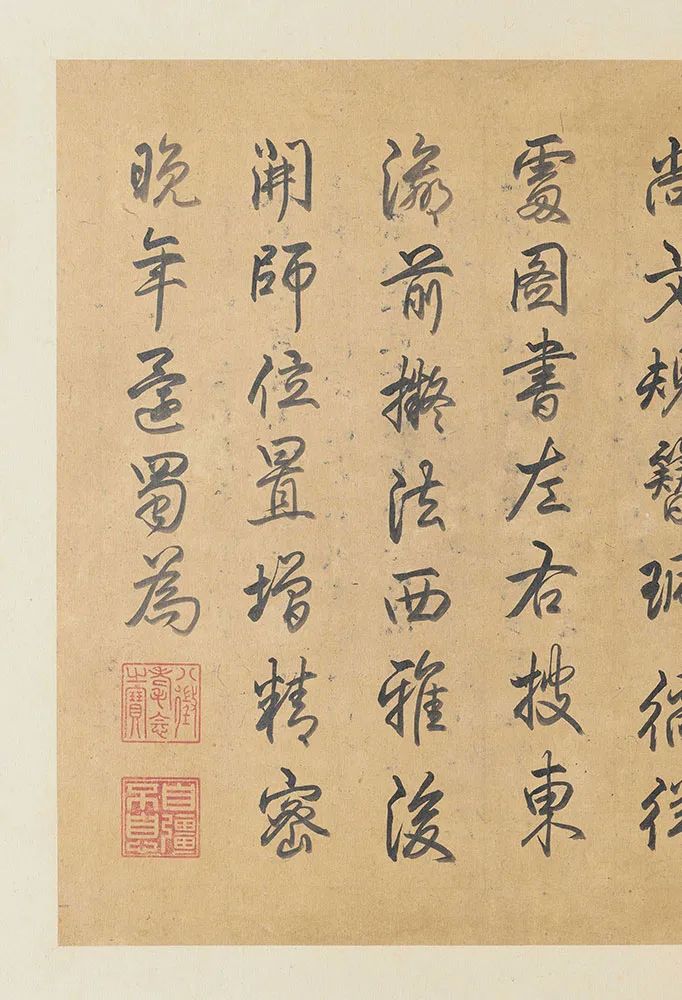 尚文規簪
圖書左右披東
瀛前擬法西雅後
開師位置增精密
晚年蜀為
八徵耄念之寶
自彊不息